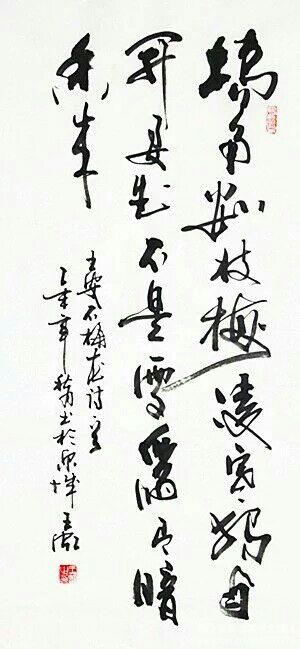 墙角数枝梅凌寒独自
开遥知不是雪为有暗
香来
王安石梅花诗一首